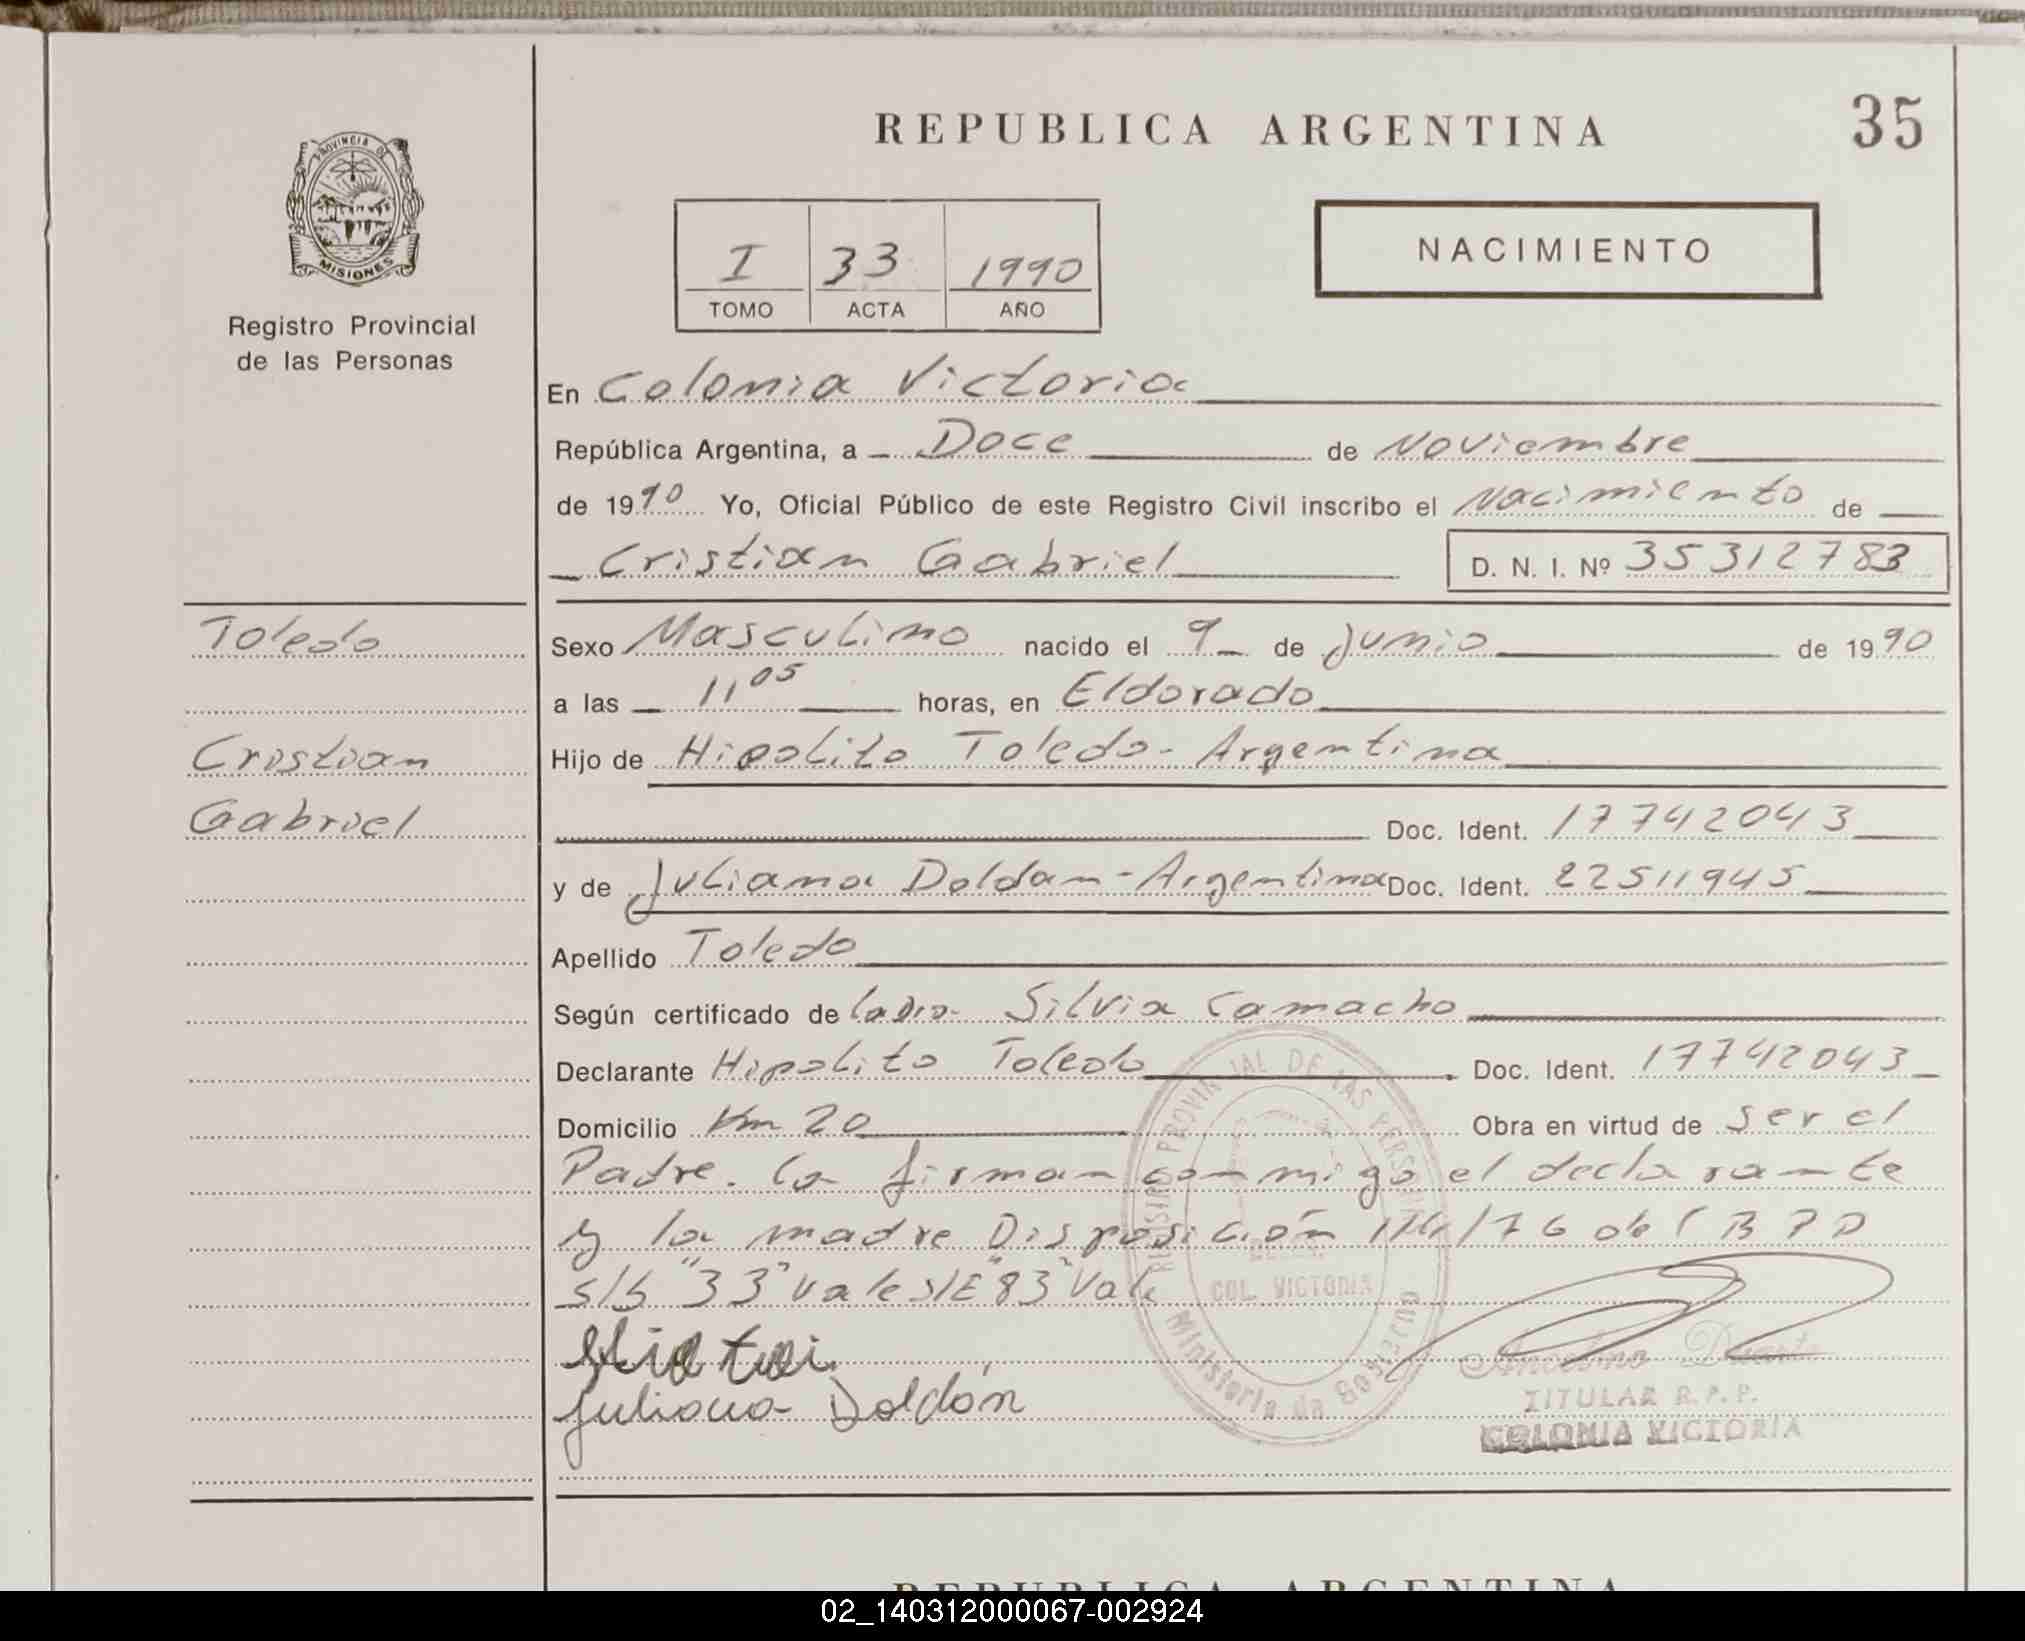 REPUBLICA ARGENTINA
35
PROVINCIA DE
MISIONES
Registro Provincial
de las Personas
I 33 1990
TOMO ACTA AÑO
NACIMIENTO
En Colonia Victoria
República Argentina, a Doce de Noviembre
de 1990 Yo, Oficial Público de este Registro Civil inscribo el Nacimiento de
Cristian Gabriel D. N. I. Nº 35312783
Toledo
Cristian
Gabriel
Sexo Masculino nacido el 9 de Junio de 1990
a las 11 05 horas, en Eldorado
Hijo de Hipolito Toledo - Argentina
Doc. Ident. 17742043
y de Juliana Doldan - Argentina Doc. Ident. 22511945
Apellido Toledo
Según certificado de la Silvia Camacho
Declarante Hipolito Toledo Doc. Ident. 17742043
Domicilio Km 20 Obra en virtud de ser el
Padre. la firman conmigo el declarante
y la madre Disposición 114/76 del
s/b "33" vale s/E "83" Vale
Juliana Doldán
COL. VICTORIA
Ministerio de Gobierno
Anselmo Duarte
TITULAR R.P.P.
COLONIA VICTORIA
REPUBLICA ARGENTINA
02_140312000067-002924